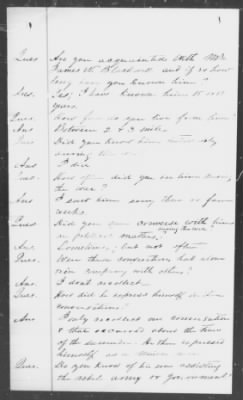 Ques Are you acquainted with Mr
James W. and if so how
long have you known him?
Ans. Yes; I have known him 15 or 18
years.
Ques. How far do you live from him?
Ans Between 2 & 3 miles.
Ques Did you know him
during the war
Ans I did
Ques. How often did you see him during
the war?
Ans I saw him some, then in four
weeks.
Ques Did you ever converse with him
during the war
on political matters?
Ans. Sometimes, but not often
Ques. Were these conversations had alone
or in company with others?
Ans. I dont recollect.
Ques. How did he express himself in these
conversations?
Ans I only recollect one conversation
& that occurred about the time
of the surrender. He then expressed
himself as a Union man
Ques. Do you know of his ever assisting
the rebel army or government?